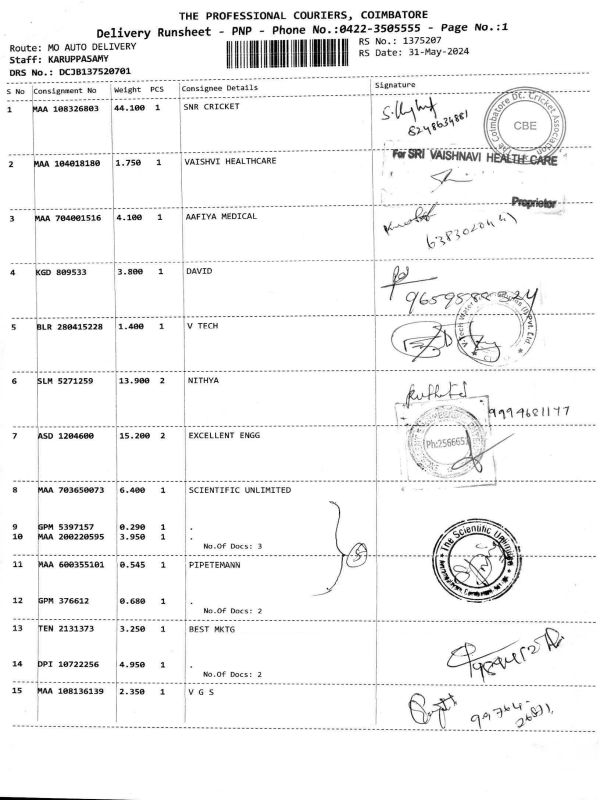 THE PROFESSIONAL COURIERS, COIMBATORE
Delivery Runsheet - PNP - Phone No.:0422-3505555 - Page No.:1
Route: MO AUTO DELIVERY
RS No.: 1375207
Staff: KARUPPASAMY
RS Date: 31-May-2024
DRS No.: DCJB137520701
S No Consignment No Weight PCS Consignee Details Signature
1 MAA 108326803 44.100 1 SNR CRICKET
8248634881
Coimbatore Dt. Cricket Association
CBE
2 MAA 104018180 1.750 1 VAISHVI HEALTHCARE
For SRI VAISHNAVI HEALTH CARE
Proprietor
3 MAA 704001516 4.100 1 AAFIYA MEDICAL
4 KGD 809533 3.800 1 DAVID
5 BLR 280415228 1.400 1 V TECH
6 SLM 5271259 13.900 2 NITHYA
9994681177
7 ASD 1204600 15.200 2 EXCELLENT ENGG
8 MAA 703650073 6.400 1 SCIENTIFIC UNLIMITED
9 GPM 5397157 0.290 1 .
10 MAA 200220595 3.950 1 .
No.Of Docs: 3
5
The Scientific Unlimited
11 MAA 600355101 0.545 1 PIPETEMANN
12 GPM 376612 0.680 1 .
No.Of Docs: 2
13 TEN 2131373 3.250 1 BEST MKTG
14 DPI 10722256 4.950 1 .
No.Of Docs: 2
15 MAA 108136139 2.350 1 V G S
99764